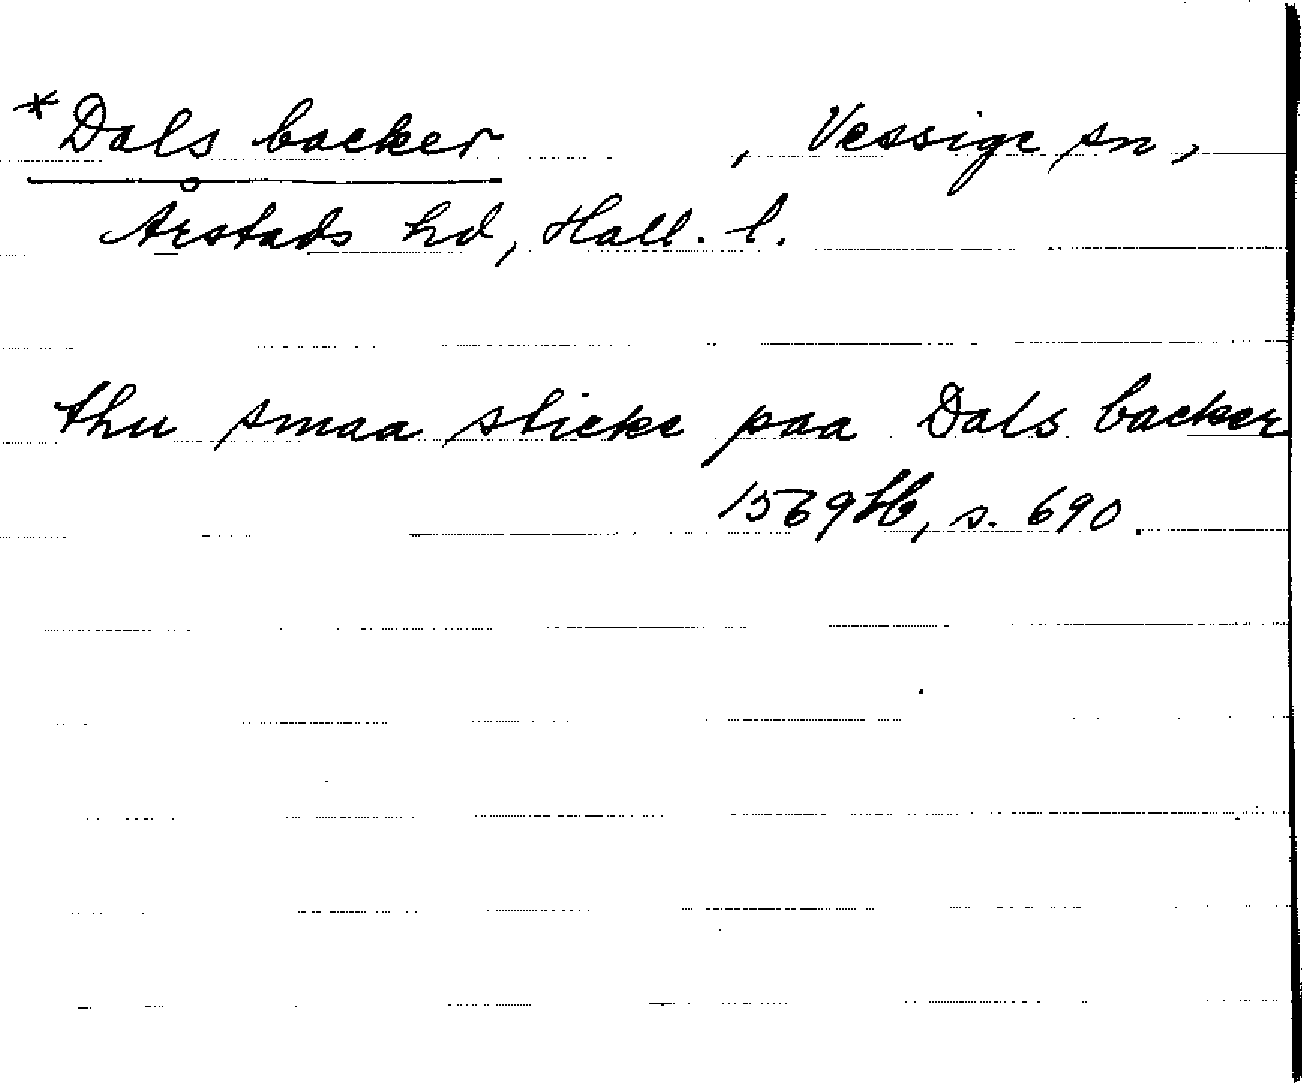 *Dals backer , Vessige sn,
Årstads hd, Hall. l.
thu smaa sticke paa Dals backer
1569 Jb, s. 690.